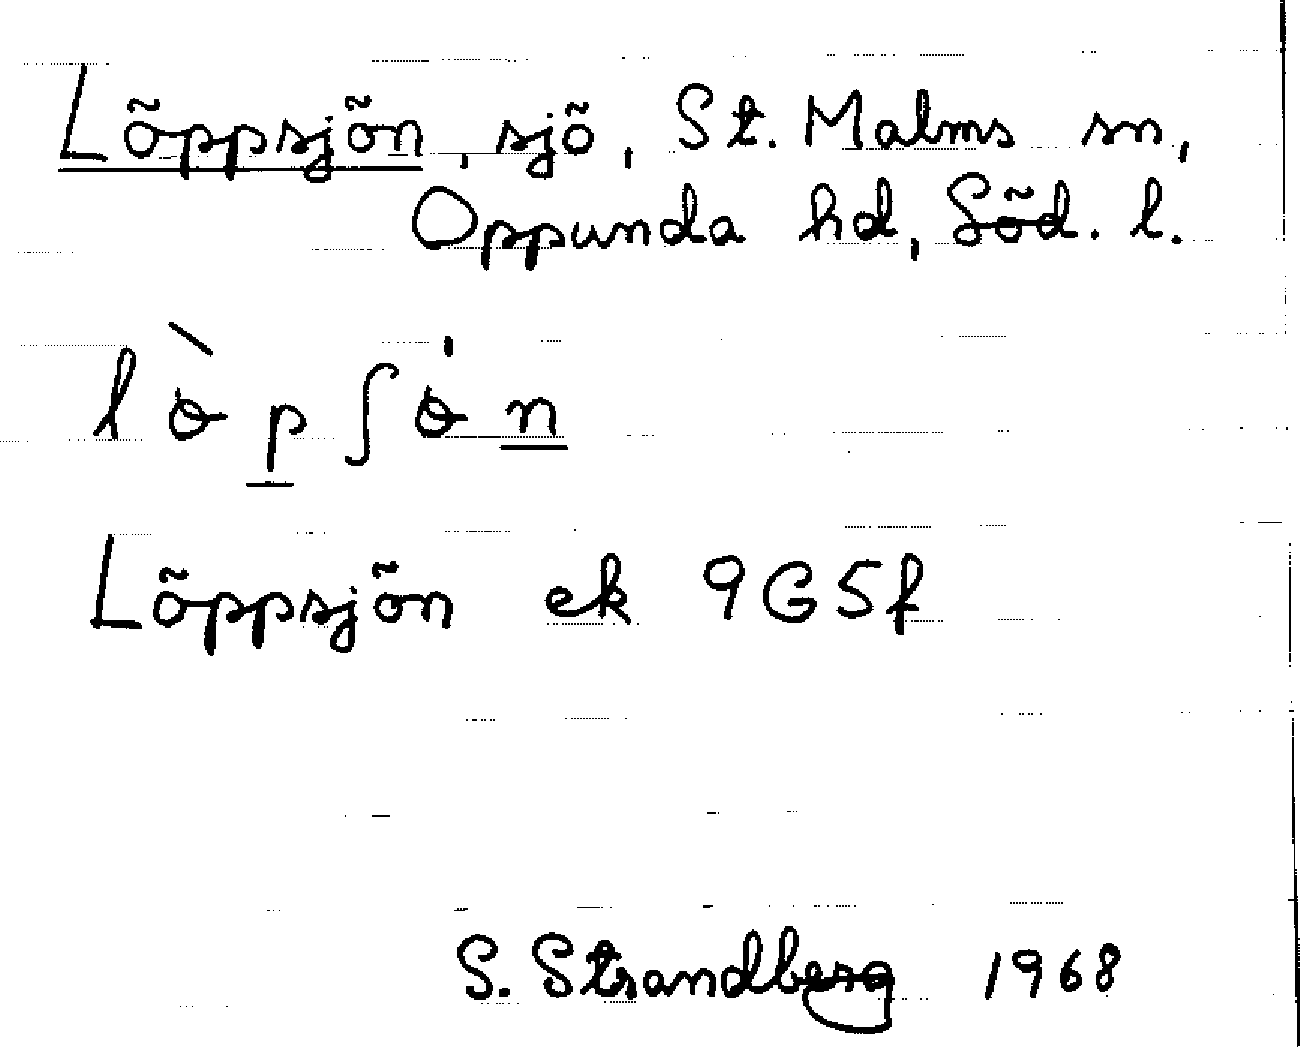 Löppsjön, sjö, St. Malms sn,
Oppunda hd, Söd. l.
Löppsjön ek 9G5f
S. Strandberg 1968